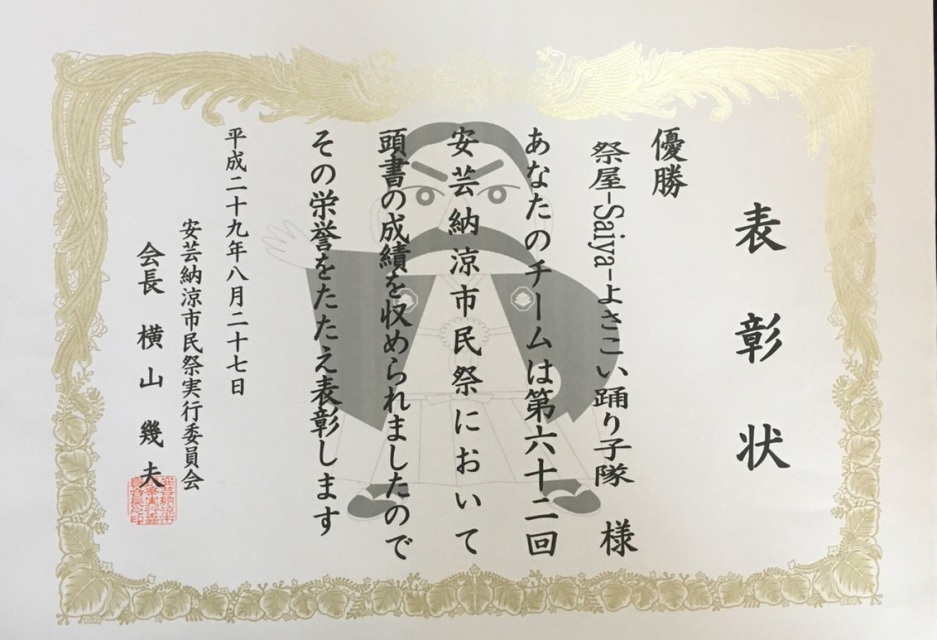 表彰状
優勝
祭屋-Saiya-よさこい踊り子隊 様
あなたのチームは第六十二回
安芸納涼市民祭において
頭書の成績を収められましたので
その栄誉をたたえ表彰します
平成二十九年八月二十七日
安芸納涼市民祭実行委員会
会長 横山 幾夫